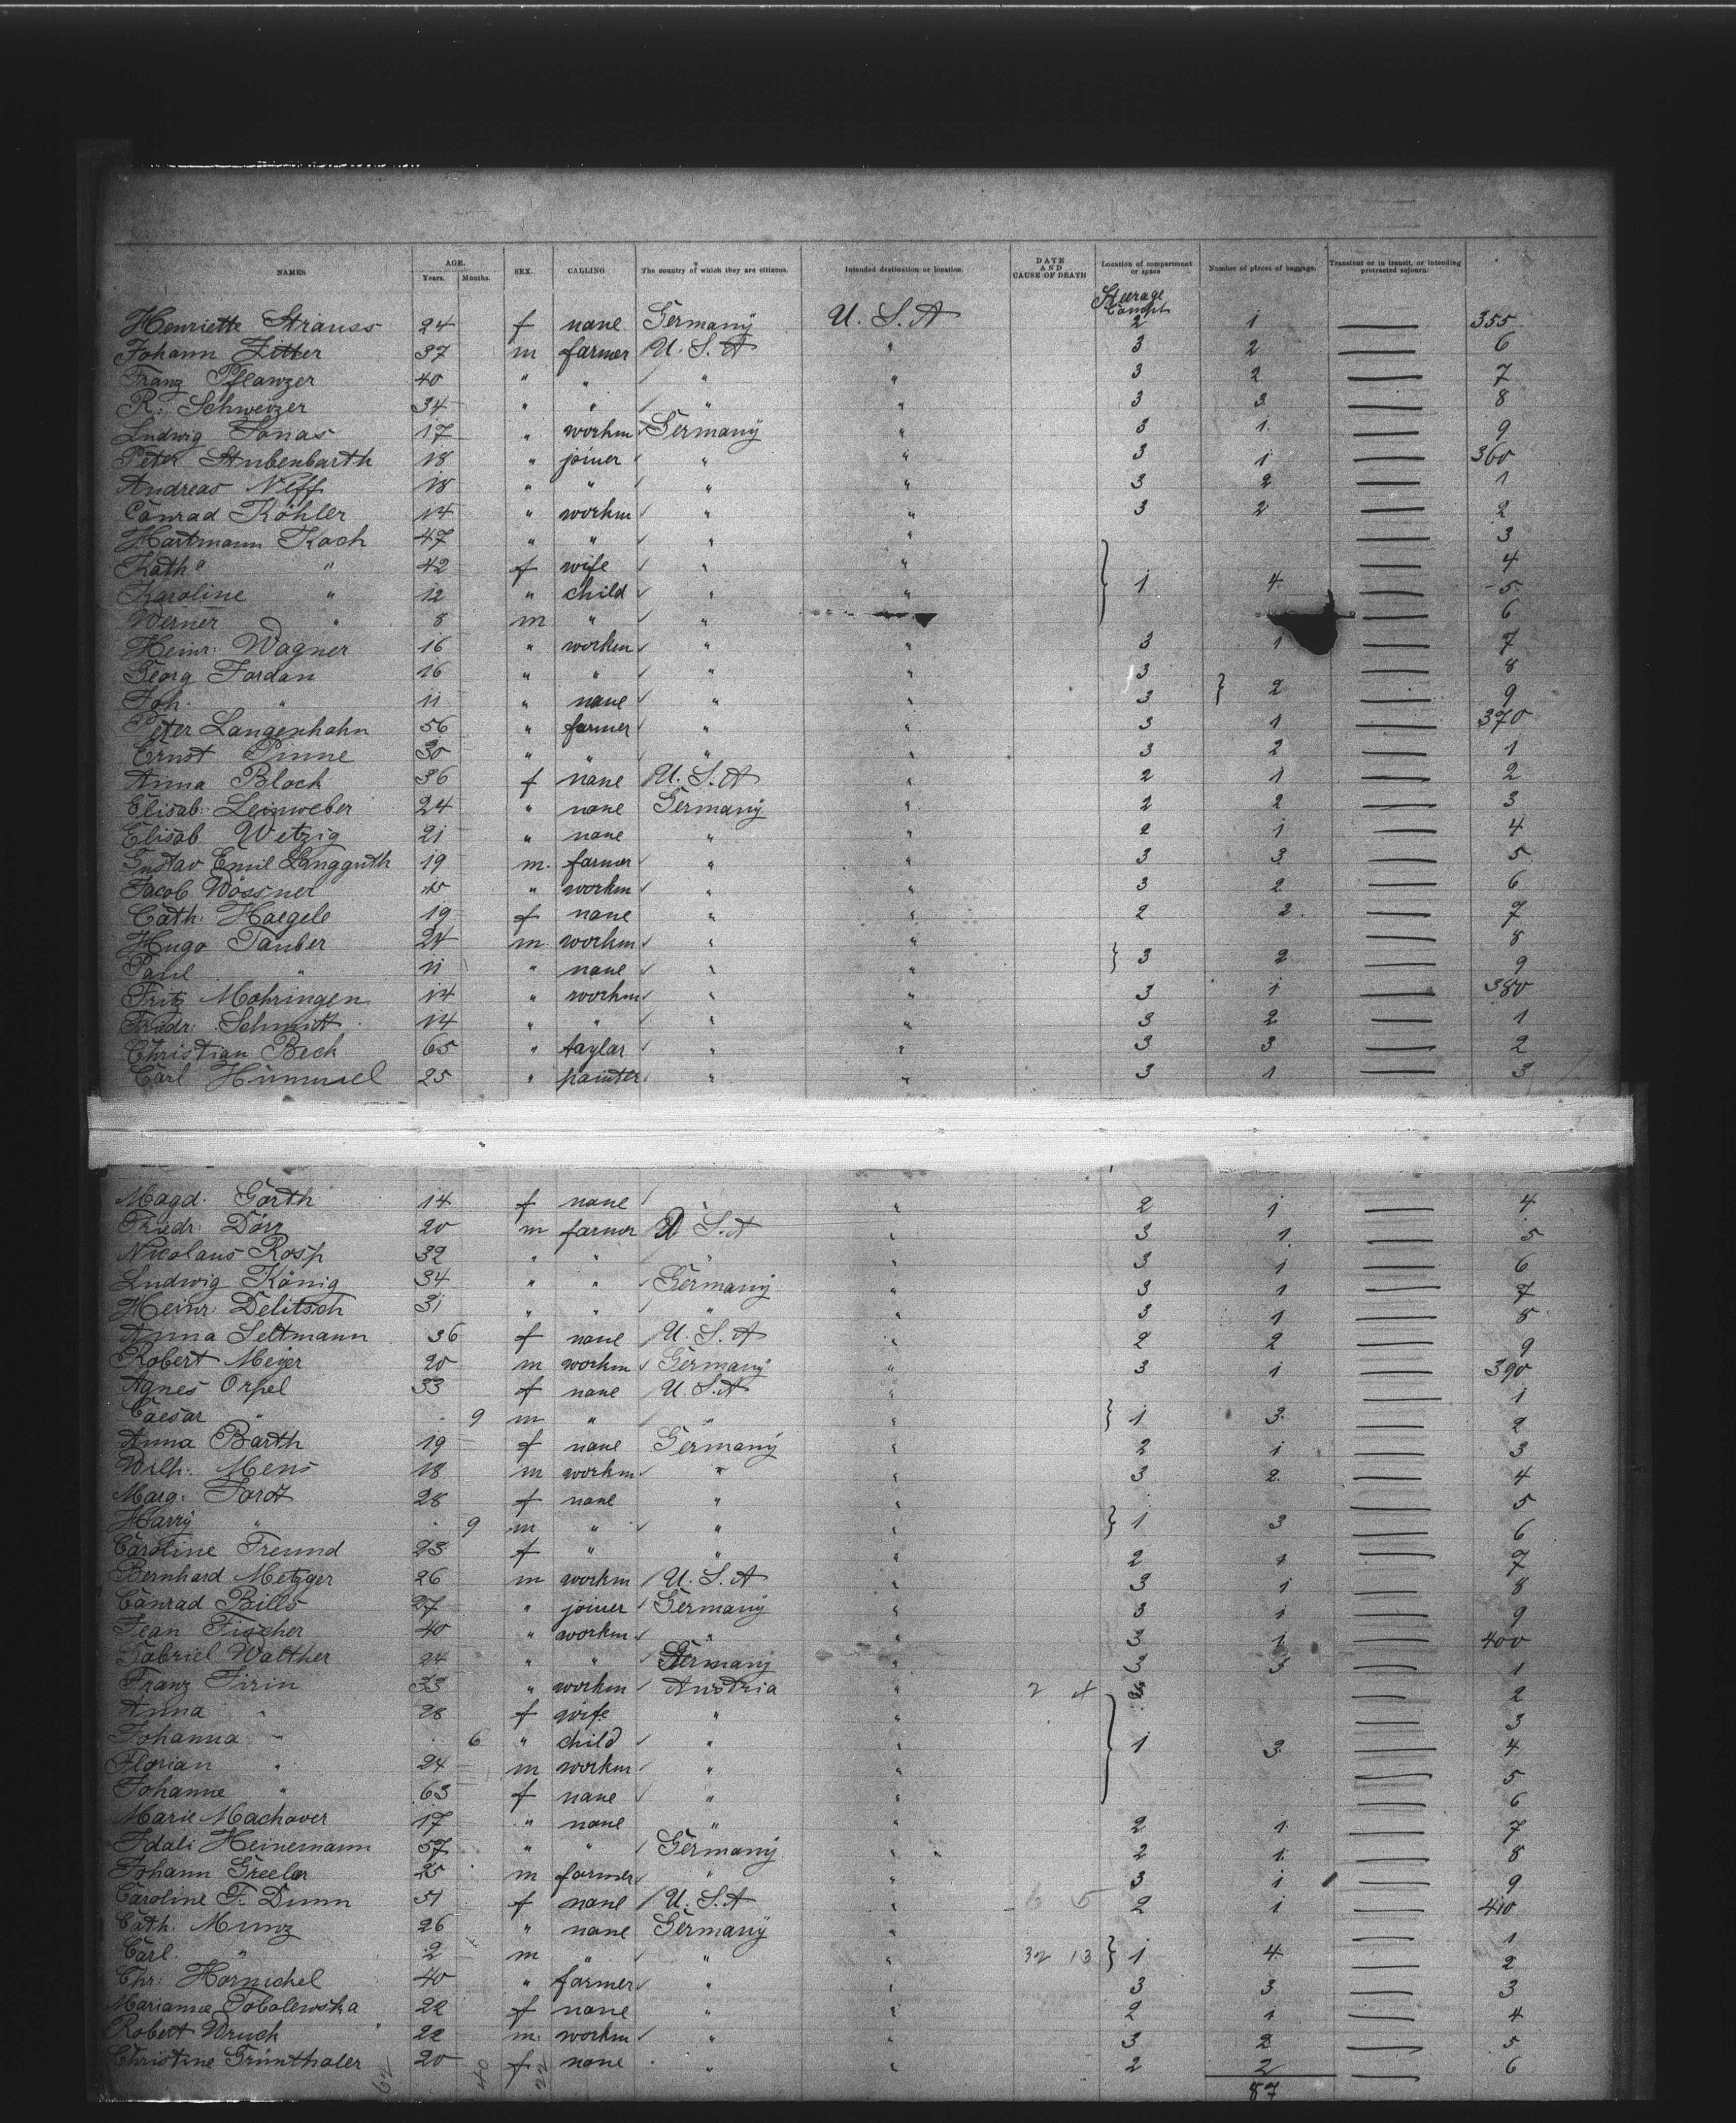 NAMES AGE. Years. Months. SEX. CALLING The country of which they are citizens. Intended destination or location. DATE AND CAUSE OF DEATH Location of compartment or space Number of pieces of baggage. Transient or in transit, or intending protracted sojourn.
Steerage
Henriette Strauss 24 f none Germany U. S. A Compt 2 1 — 355
Johann Zitter 37 m farmer U. S. A " 3 2 — 6
Franz Pflanzer 40 " " " " 3 2 — 7
R. Schweizer 34 " " " " 3 3 — 8
Ludwig Jonas 17 " workm Germany " 3 1 — 9
Peter Stubenbarth 18 " joiner " " 3 1 — 360
Andreas Neff 18 " " " " 3 2 — 1
Conrad Köhler 14 " workm " " 3 2 — 2
Hartmann Koch 47 " " " " — 3
Kath " 42 f wife " " — 4
Karoline " 12 " child " " 1 4 — 5
Werner " 8 m " " " — 6
Heinr. Wagner 16 " workm " " 3 1 — 7
Georg Jordan 16 " " " " 3 — 8
Joh. " 11 " none " " 3 2 — 9
Peter Langenhahn 56 " farmer " " 3 1 — 370
Ernst Pinne 30 " " " " 3 2 — 1
Anna Bloch 36 f none U. S. A " 2 1 — 2
Elisab. Leinweber 24 " none Germany " 2 2 — 3
Elisab Wetzig 21 " none " " 2 1 — 4
Gustav Emil Langguth 19 m. farmer " " 3 3 — 5
Jacob Wössner 15 " workm " " 3 2 — 6
Cath. Haegele 19 f none " " 2 2 — 7
Hugo Tauber 24 m workm " " — 8
Paul " 11 " none " " 3 2 — 9
Fritz Mohringen 14 " workm " " 3 1 — 380
Friedr. Schmidt 14 " " " " 3 2 — 1
Christian Beck 65 " taylor " " 3 3 — 2
Carl Hummel 25 " painter " " 3 1 — 3
Magd. Garth 14 f none " " 2 1 — 4
Friedr. Dörr 20 m farmer U. S. A " 3 1 — 5
Nicolaus Rosp 32 " " " " 3 1 — 6
Ludwig König 34 " " Germany " 3 1 — 7
Heinr. Delitsch 31 " " " " 3 1 — 8
Anna Seltmann 36 f none U. S. A " 2 2 — 9
Robert Meijer 20 m workm Germany " 3 1 — 390
Agnes Orpel 33 f none U. S. A " — 1
Caesar " 9 m " " " 1 3 — 2
Anna Barth 19 f none Germany " 2 1 — 3
Wilh. Mens 18 m workm " " 3 2 — 4
Marg. Jordt 28 f none " " — 5
Harry " 9 m " " " 1 3 — 6
Caroline Freund 23 f " " " 2 1 — 7
Bernhard Metzger 26 m workm U. S. A " 3 1 — 8
Conrad Bills 27 " joiner Germany " 3 1 — 9
Jean Fischer 40 " workm " " 3 1 — 400
Gabriel Walther 24 " " Germany " 3 3 — 1
Franz Jirin 33 " workm Austria " 2 4 — 2
Anna " 28 f wife " " — 3
Johanna " 6 " child " " 1 3 — 4
Florian " 24 m workm " " — 5
Johanne " 63 f none " " — 6
Marie Machover 17 " none " " 2 1 — 7
Idali Heinemann 57 " " Germany " 2 1 — 8
Johann Greeler 25 m farmer " " 3 1 — 9
Caroline F. Dunn 51 f none U. S. A " 6 5 2 1 — 410
Cath. Munz 26 " none Germany " — 1
Carl. " 2 m " " " 32 13 1 4 — 2
Chr. Hornichel 40 " farmer " " 3 3 — 3
Marianne Tobolewska 22 f none " " 2 1 — 4
Robert Druck 22 m. workm " " 3 2 — 5
Christine Grünthaler 20 f none " " 2 2 — 6
62 40 22 87